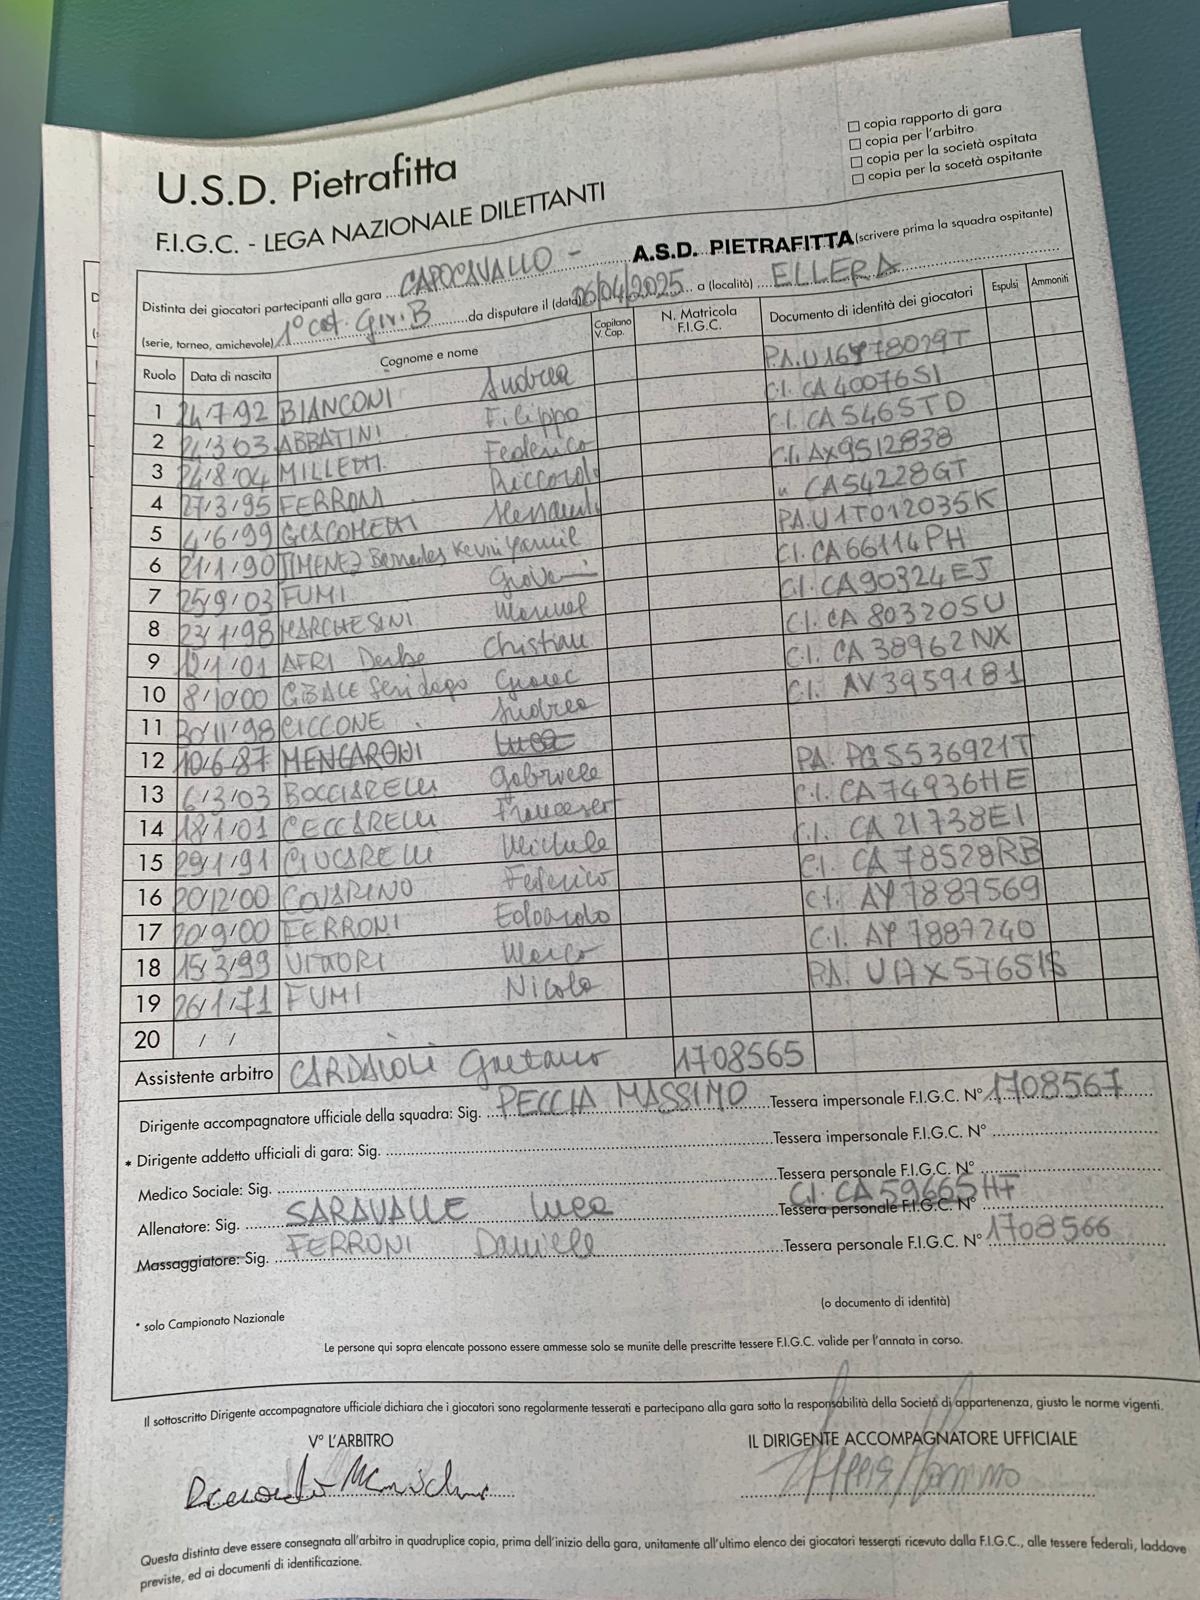 copia rapporto di gara
copia per l'arbitro
copia per la società ospitata
copia per la socetà ospitante
U.S.D. Pietrafitta
F.I.G.C. - LEGA NAZIONALE DILETTANTI
Distinta dei giocatori partecipanti alla gara CAPOCAVALLO - A.S.D. PIETRAFITTA (scrivere prima la squadra ospitante)
(serie, torneo, amichevole) 1° cat. Gir. B da disputare il (data) 06/04/2025 a (località) ELLERA
Ruolo Data di nascita Cognome e nome Capitano V. Cap. N. Matricola F.I.G.C. Documento di identità dei giocatori Espulsi Ammoniti
1 24/7/92 BIANCONI Andrea P.A. U16Y78029T
2 24/3/03 ABBATINI Filippo C.I. CA40076SI
3 24/8/04 MILLETTI Federico C.I. CA5465TD
4 27/3/95 FERRONI Riccardo C.I. AX9512838
5 4/6/99 GIACOMETTI " CA54228GT
6 21/1/90 JIMENEZ Kevin Yamil PA. U1T012035K
7 25/9/03 FUMI Giovanni C.I. CA66114PH
8 23/1/98 MARCHESINI Manuel C.I. CA90324EJ
9 12/1/01 AFRI Christian C.I. CA 80320SU
10 8/10/00 C.I. CA 38962NX
11 30/11/98 CICCONE Andrea C.I. AV3959181
12 10/6/87 MENCARONI Luca
13 6/3/03 BOCCIARELLI Gabriele PA. PG5536921T
14 18/1/01 CECCARELLI Francesco C.I. CA74936HE
15 29/1/91 CIUCARELLI Michele C.I. CA 21738EI
16 20/12/00 Federico C.I. CA 78528RB
17 20/9/00 FERRONI Edoardo C.I. AY 7887569
18 15/3/99 VITTORI Marco C.I. AY 7887240
19 26/1/71 FUMI Nicola P.A. UAX5765
20 / /
Assistente arbitro CARDAIOLI Gaetano 1708565
Dirigente accompagnatore ufficiale della squadra: Sig. PECCIA MASSIMO Tessera impersonale F.I.G.C. N° 1708567
* Dirigente addetto ufficiali di gara: Sig. Tessera impersonale F.I.G.C. N°
Medico Sociale: Sig. Tessera personale F.I.G.C. N°
Allenatore: Sig. SARAVALLE Luca Tessera personale F.I.G.C. N° C.I. CA59665HF
Massaggiatore: Sig. FERRONI Daniele Tessera personale F.I.G.C. N° 1708566
* solo Campionato Nazionale (o documento di identità)
Le persone qui sopra elencate possono essere ammesse solo se munite delle prescritte tessere F.I.G.C. valide per l'annata in corso.
Il sottoscritto Dirigente accompagnatore ufficiale dichiara che i giocatori sono regolarmente tesserati e partecipano alla gara sotto la responsabilità della Società di appartenenza, giusto le norme vigenti.
V° L'ARBITRO IL DIRIGENTE ACCOMPAGNATORE UFFICIALE
Questa distinta deve essere consegnata all'arbitro in quadruplice copia, prima dell'inizio della gara, unitamente all'ultimo elenco dei giocatori tesserati ricevuto dalla F.I.G.C., alle tessere federali, laddove
previste, ed ai documenti di identificazione.